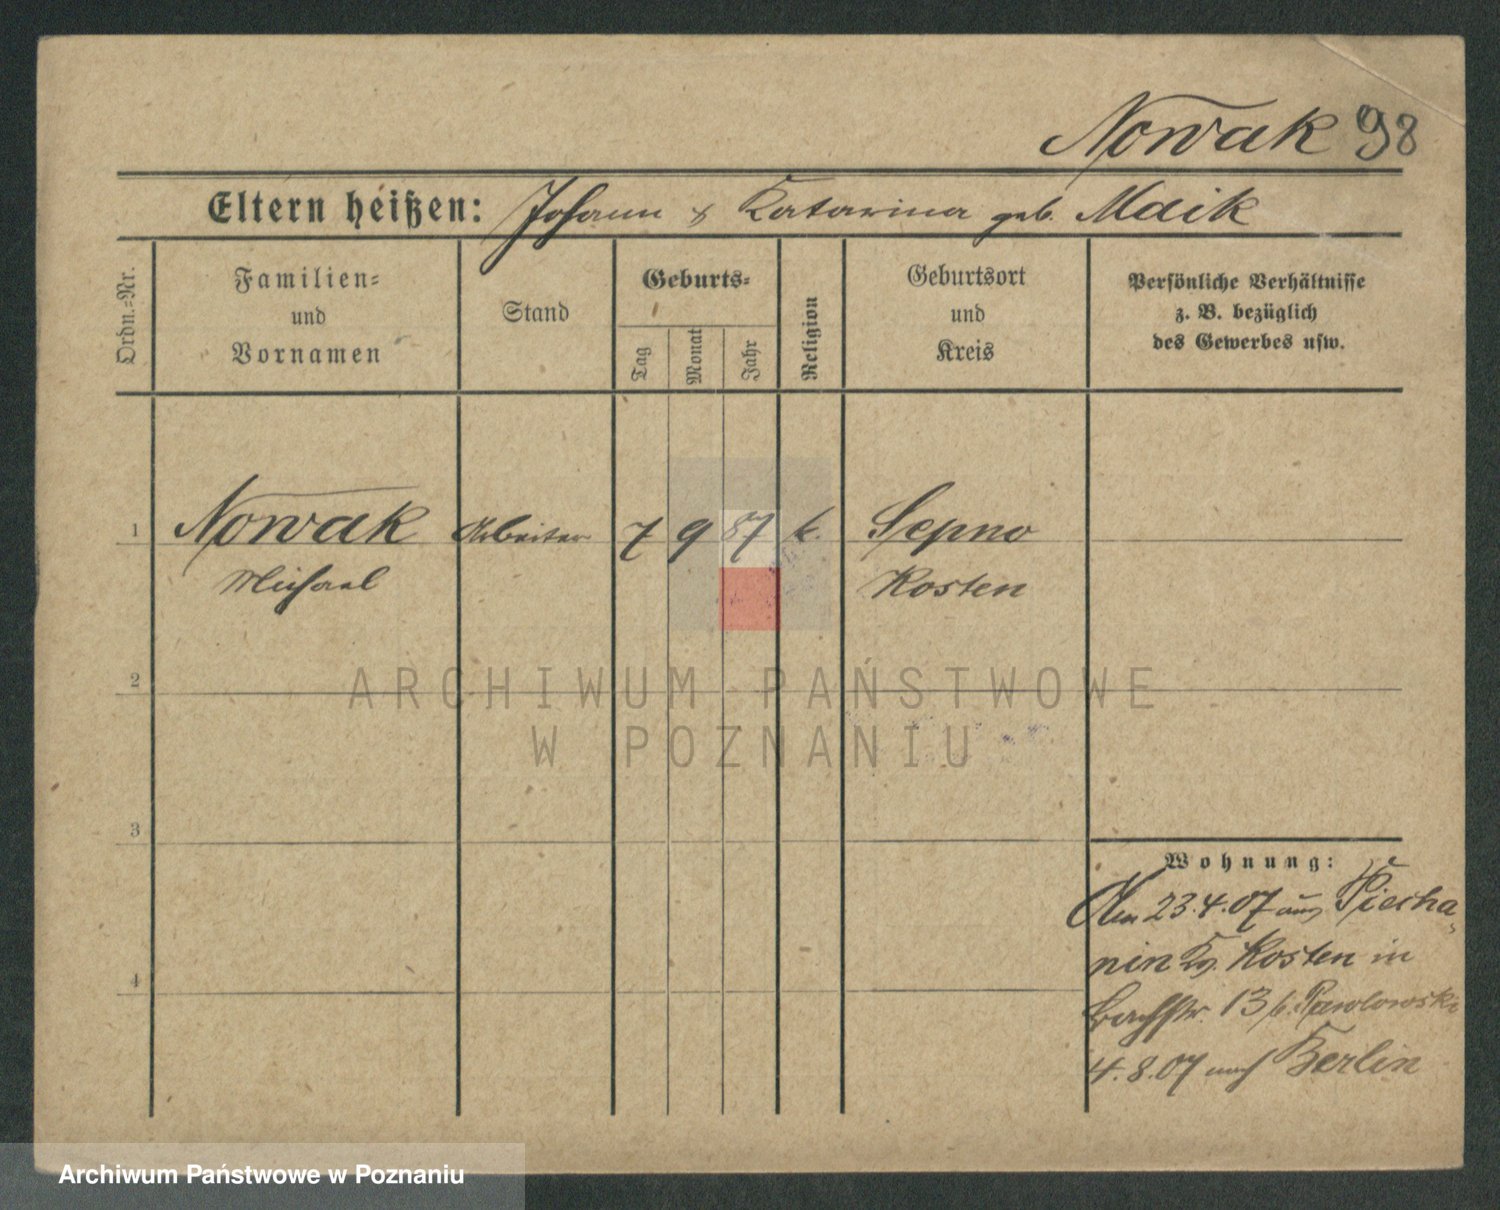 Nowak 98
Eltern heißen: Johann & Katarina geb. Maik
Ordn.=Nr.
Familien=
und
Vornamen
Stand
Geburts=
Tag
Monat
Jahr
Religion
Geburtsort
und
Kreis
Persönliche Verhältnisse
z. B. bezüglich
des Gewerbes usw.
1 Nowak Arbeiter 7 9 87 k. Sepno
Michael Kosten
ARCHIWUM PAŃSTWOWE
W POZNANIU
2
3
4
Wohnung:
Am 23.4.07 aus Piecha-
nin Kr. Kosten in
Bachstr. 13 b. Pawlowski
4.8.07 nach Berlin
Archiwum Państwowe w Poznaniu